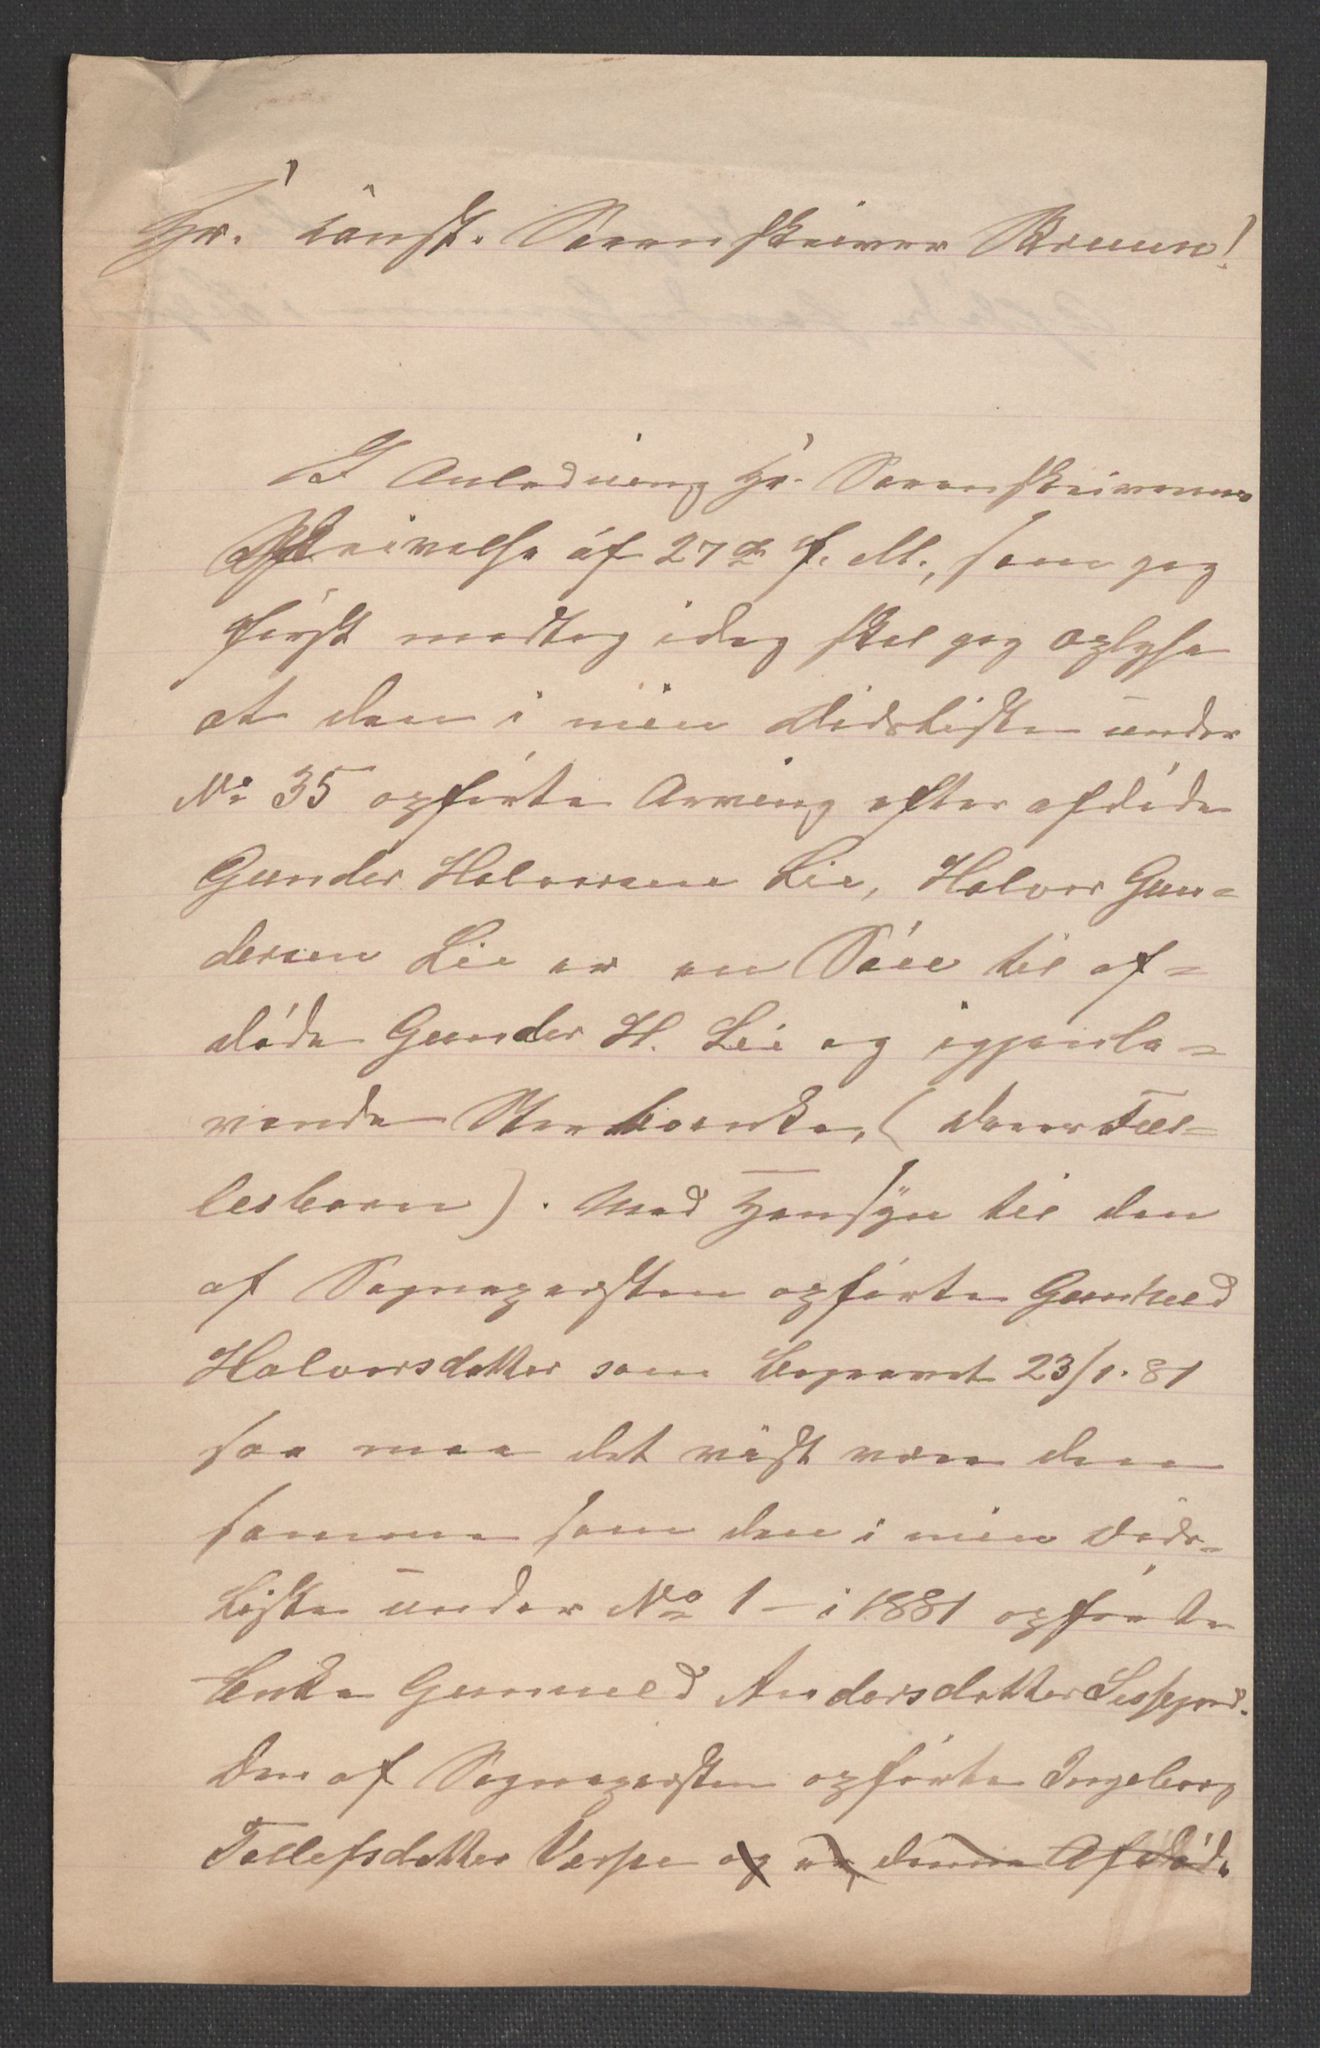 Hr. const. Sorenskriver Bruun!
I Anledning Hr. Sorenskriverens
Skrivelse af 27de f. M., som jeg
først modtog idag skal jeg oplyse
at den i min Dødsliste under
No 35 opførte Arving efter afdøde
Gunder Halvorsen Lie, Halvor Gun-
dersen Lie er en Søn til af-
døde Gunder H. Lie og igjenle-
vende Sterboenke, (deres Fæl-
lesbarn). Med Hensyn til den
af Sognepresten opførte Gunhild
Halvorsdatter som begravet 23/1. 81
saa maa det vist være den
samme som den i min Døds-
liste under No 1 - i 1881 opførte
Enke Gunnild Andersdatter
Den af Sognepresten opførte Ingeborg
Tellefsdatter Verpe og er denne Afdød.